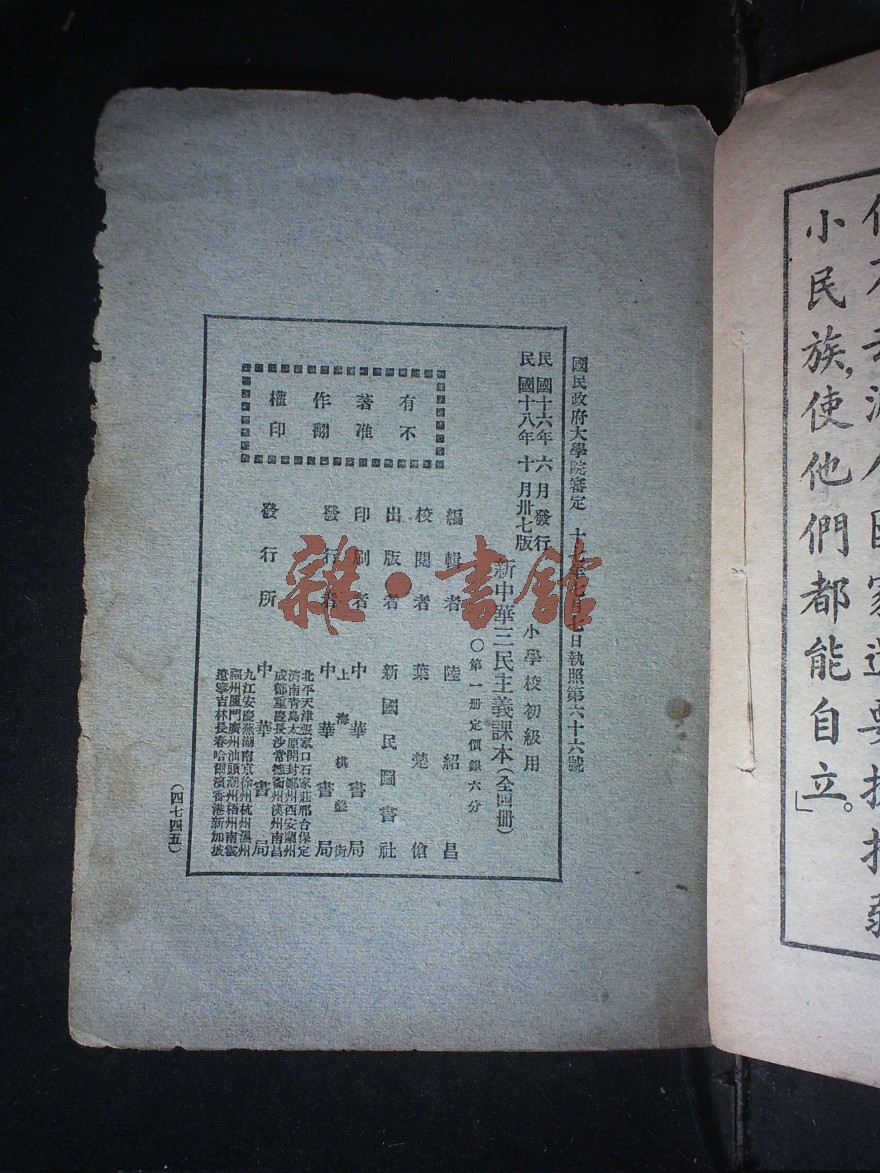 小民族,使他們都能自立。」
國民政府大學院審定 十七年七月七日執照第六十六號
民國十六年六月發行
民國十八年十月卅七版
小學校初級用
新中華三民主義課本(全四册)
○第一册定價銀六分
編輯者 陸紹昌
校閱者 葉楚傖
出版者 新國民圖書社
印刷者 中華書局
上海棋盤街
發行者 中華書局
發行所 中華書局
北平天津張家口石家莊邢台保定
濟南青島太原開封鄭州西安蘭州
成都重慶長沙常德衡州漢州南昌
九江安慶蕪湖南京徐州杭州溫州
福州廈門廣州汕頭潮州梧州南雲
遼寧吉林長春哈爾濱香港新加坡
有不
著准
作翻
權印
(四七四五)
雜·書館